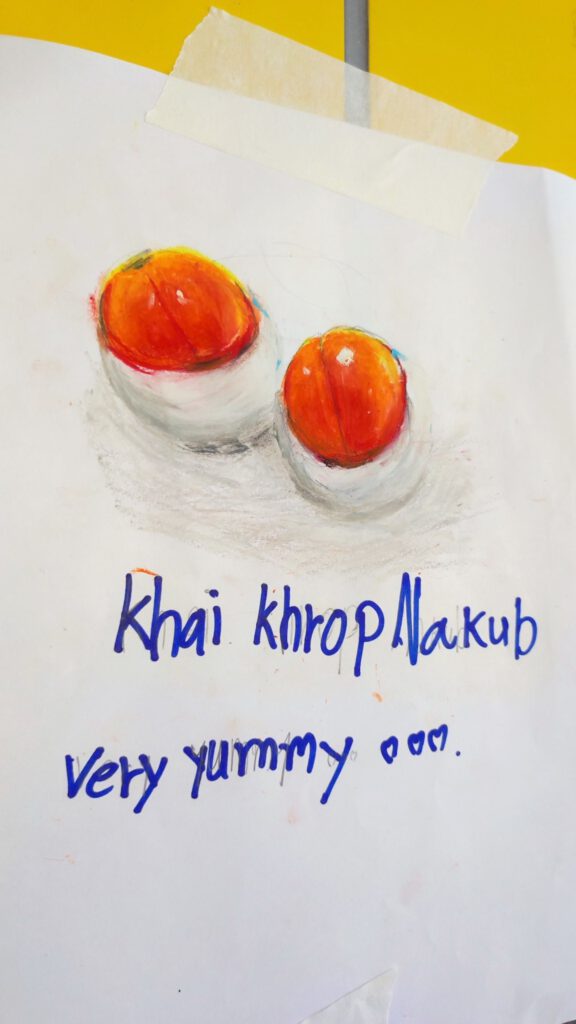 Khai khrop Nakub
Very yummy ooo.